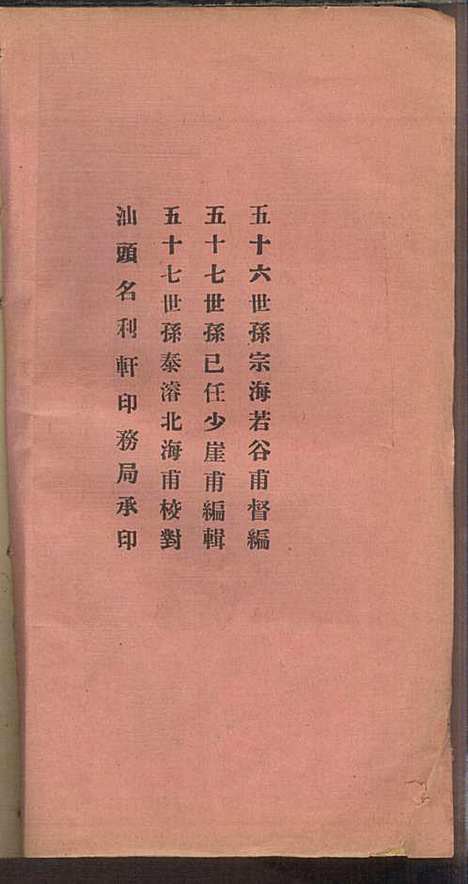 五十六世孫宗海若谷甫督編
五十七世孫已任少崖甫編輯
五十七世孫泰溶北海甫校對
汕頭名利軒印務局承印